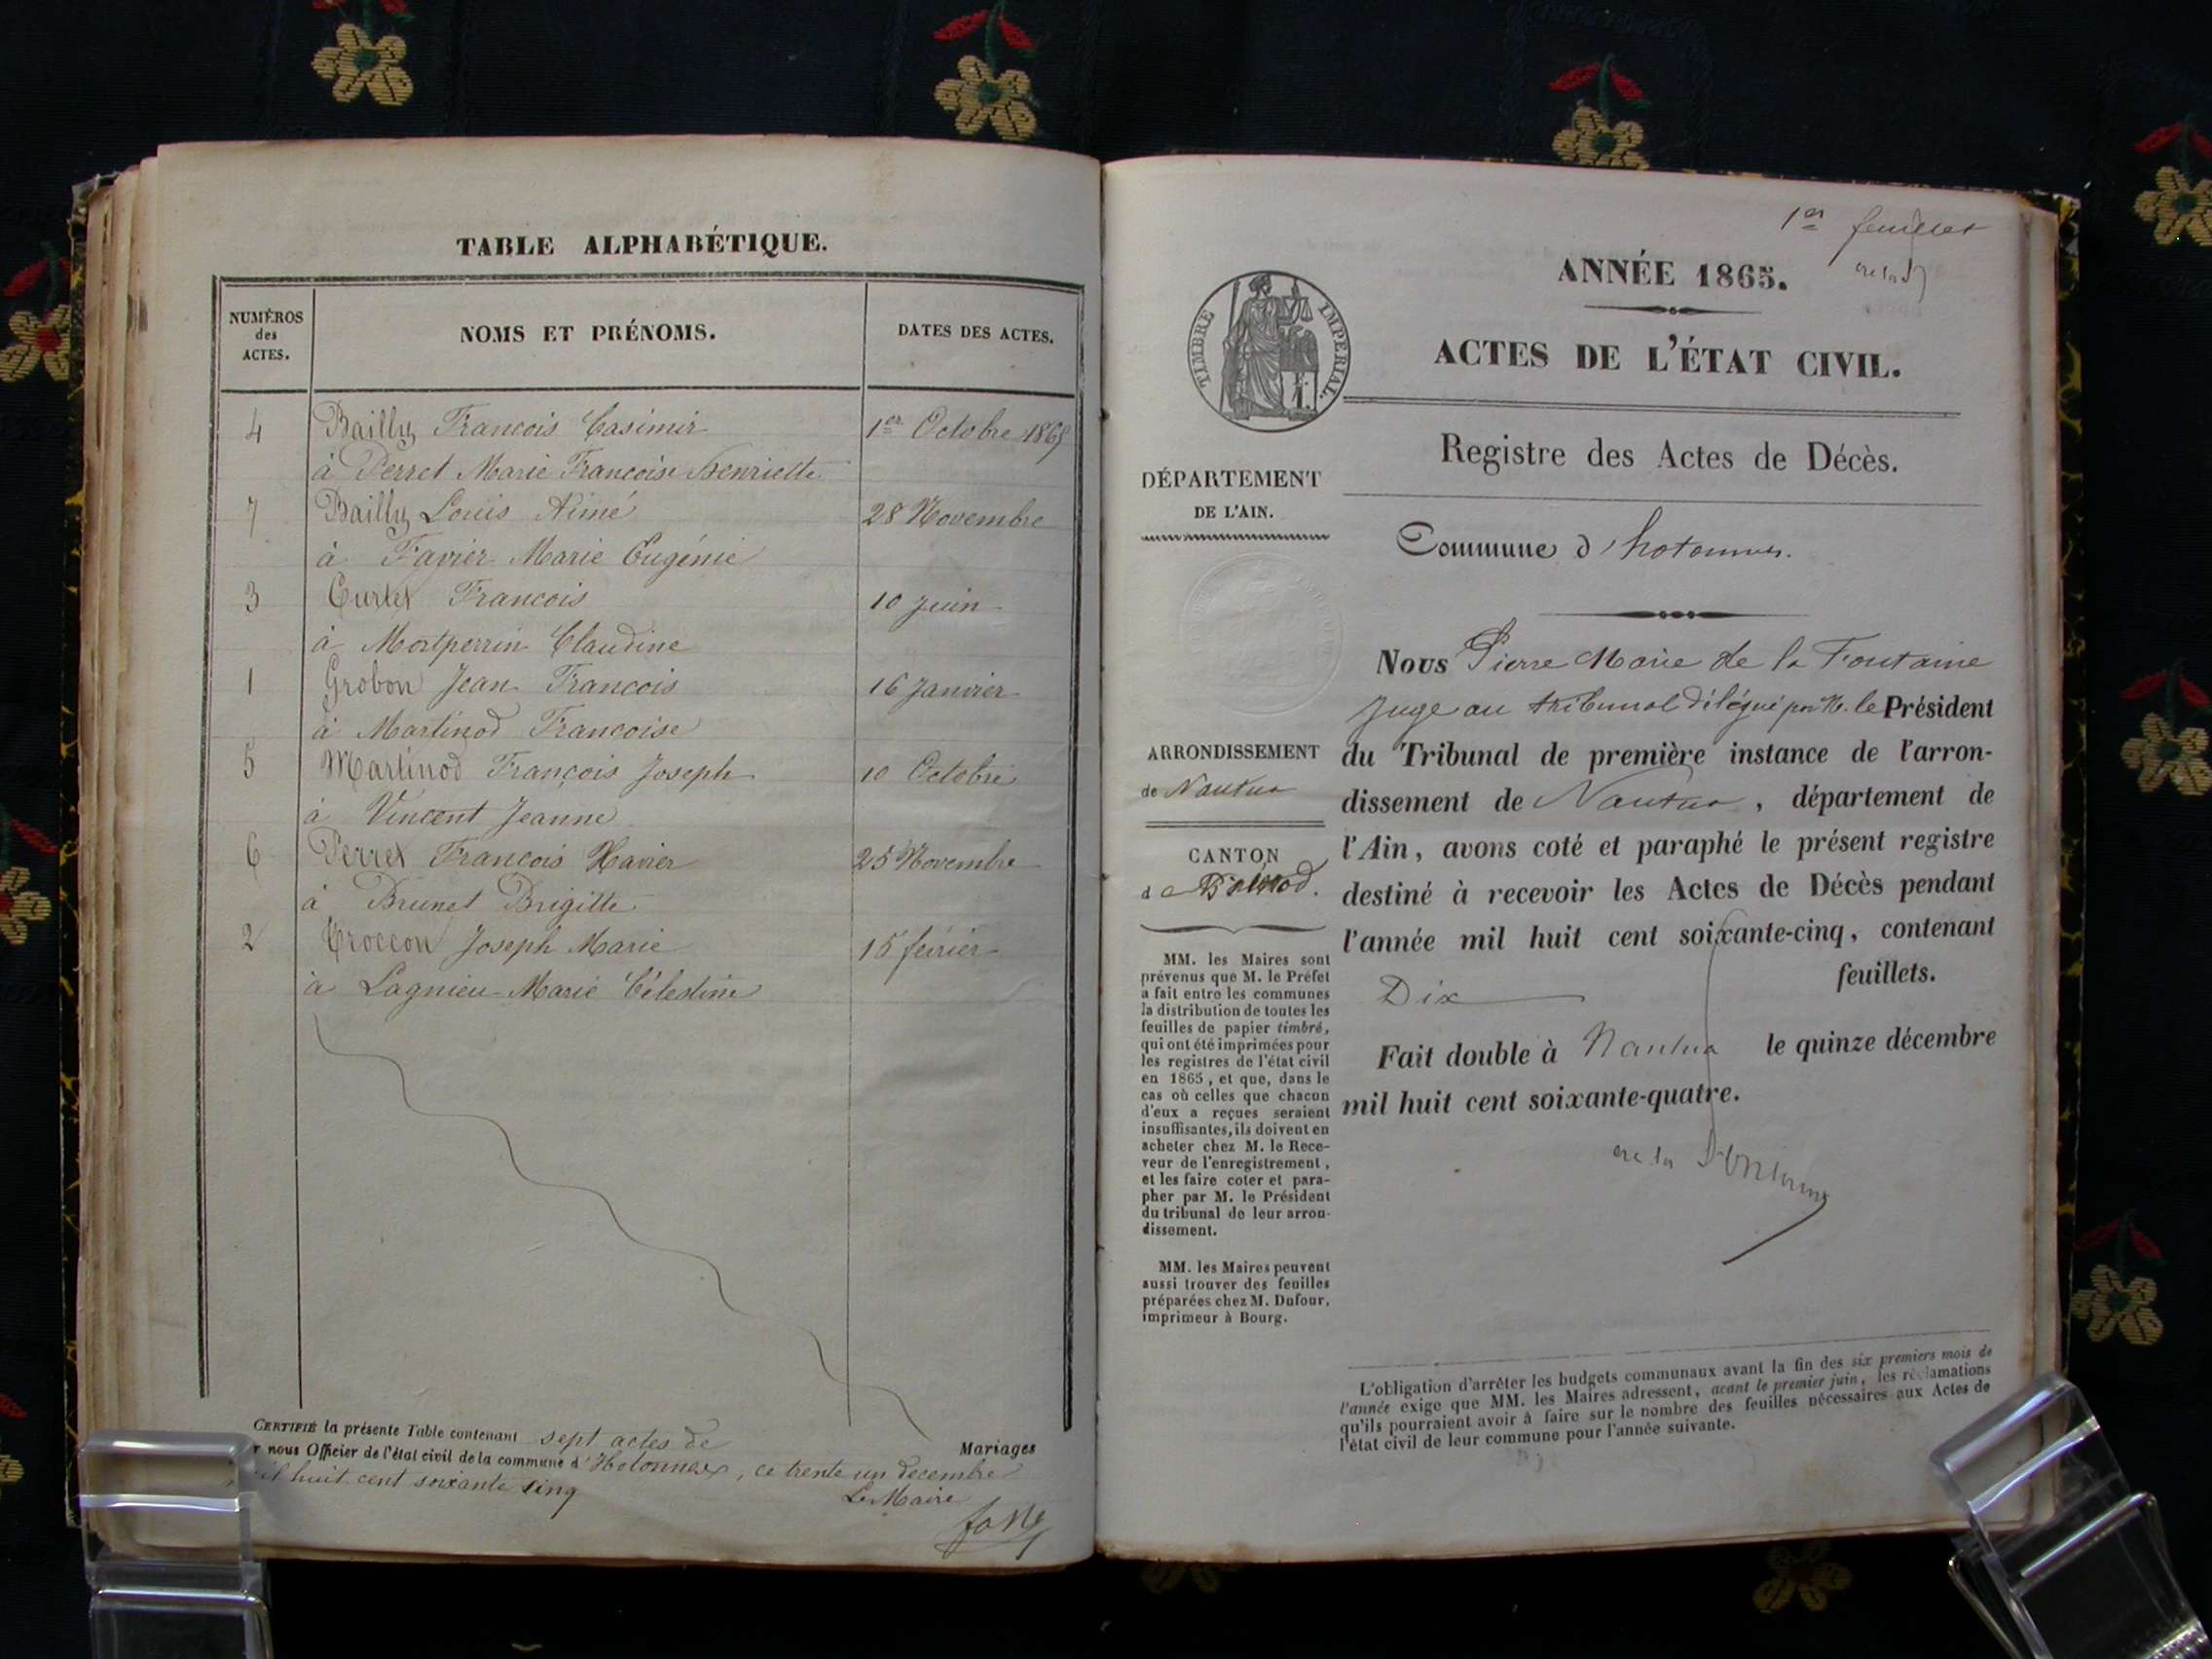 TABLE ALPHABÉTIQUE.
NUMÉROS
des
ACTES.
NOMS ET PRÉNOMS.
DATES DES ACTES.
4 Bailly François Casimir 1er Octobre 1865
à Perret Marie Françoise Henriette
7 Bailly Louis Aimé 28 Novembre
à Favier Marie Eugénie
3 Curtet François 10 Juin
à Montperrin Claudine
1 Grobon Jean François 16 Janvier
à Martinod Françoise
5 Martinod François Joseph 10 Octobre
à Vincent Jeanne
6 Perret François Xavier 25 Novembre
à Brunet Brigitte
2 Troccon Joseph Marie 15 février
à Lagnieu Marie Célestine
CERTIFIÉ la présente Table contenant sept actes de Mariages
r nous Officier de l'état civil de la commune d'Hotonnes, ce trente un decembre
il huit cent soixante cinq
Le Maire
1er feuillet
ANNÉE 1865.
ACTES DE L'ÉTAT CIVIL.
TIMBRE IMPÉRIAL
Registre des Actes de Décès.
Commune d'hotonnes.
DÉPARTEMENT
DE L'AIN.
ARRONDISSEMENT
de Nantua
CANTON
de
MM. les Maires sont
prévenus que M. le Préfet
a fait entre les communes
la distribution de toutes les
feuilles de papier timbré,
qui ont été imprimées pour
les registres de l'état civil
en 1865, et que, dans le
cas où celles que chacun
d'eux a reçues seraient
insuffisantes, ils doivent en
acheter chez M. le Rece-
veur de l'enregistrement,
et les faire coter et para-
pher par M. le Président
du tribunal de leur arron-
dissement.
MM. les Maires peuvent
aussi trouver des feuilles
préparées chez M. Dufour,
imprimeur à Bourg.
Nous Pierre Marie de la Fontaine
Juge au tribunal délégué par M. le Président
du Tribunal de première instance de l'arron-
dissement de Nantua, département de
l'Ain, avons coté et paraphé le présent registre
destiné à recevoir les Actes de Décès pendant
l'année mil huit cent soixante-cinq, contenant
Dix feuillets.
Fait double à Nantua le quinze décembre
mil huit cent soixante-quatre.
de la Fontaine
L'obligation d'arrêter les budgets communaux avant la fin des six premiers mois de
l'année exige que MM. les Maires adressent, avant le premier juin, les réclamations
qu'ils pourraient avoir à faire sur le nombre des feuilles nécessaires aux Actes de
l'état civil de leur commune pour l'année suivante.